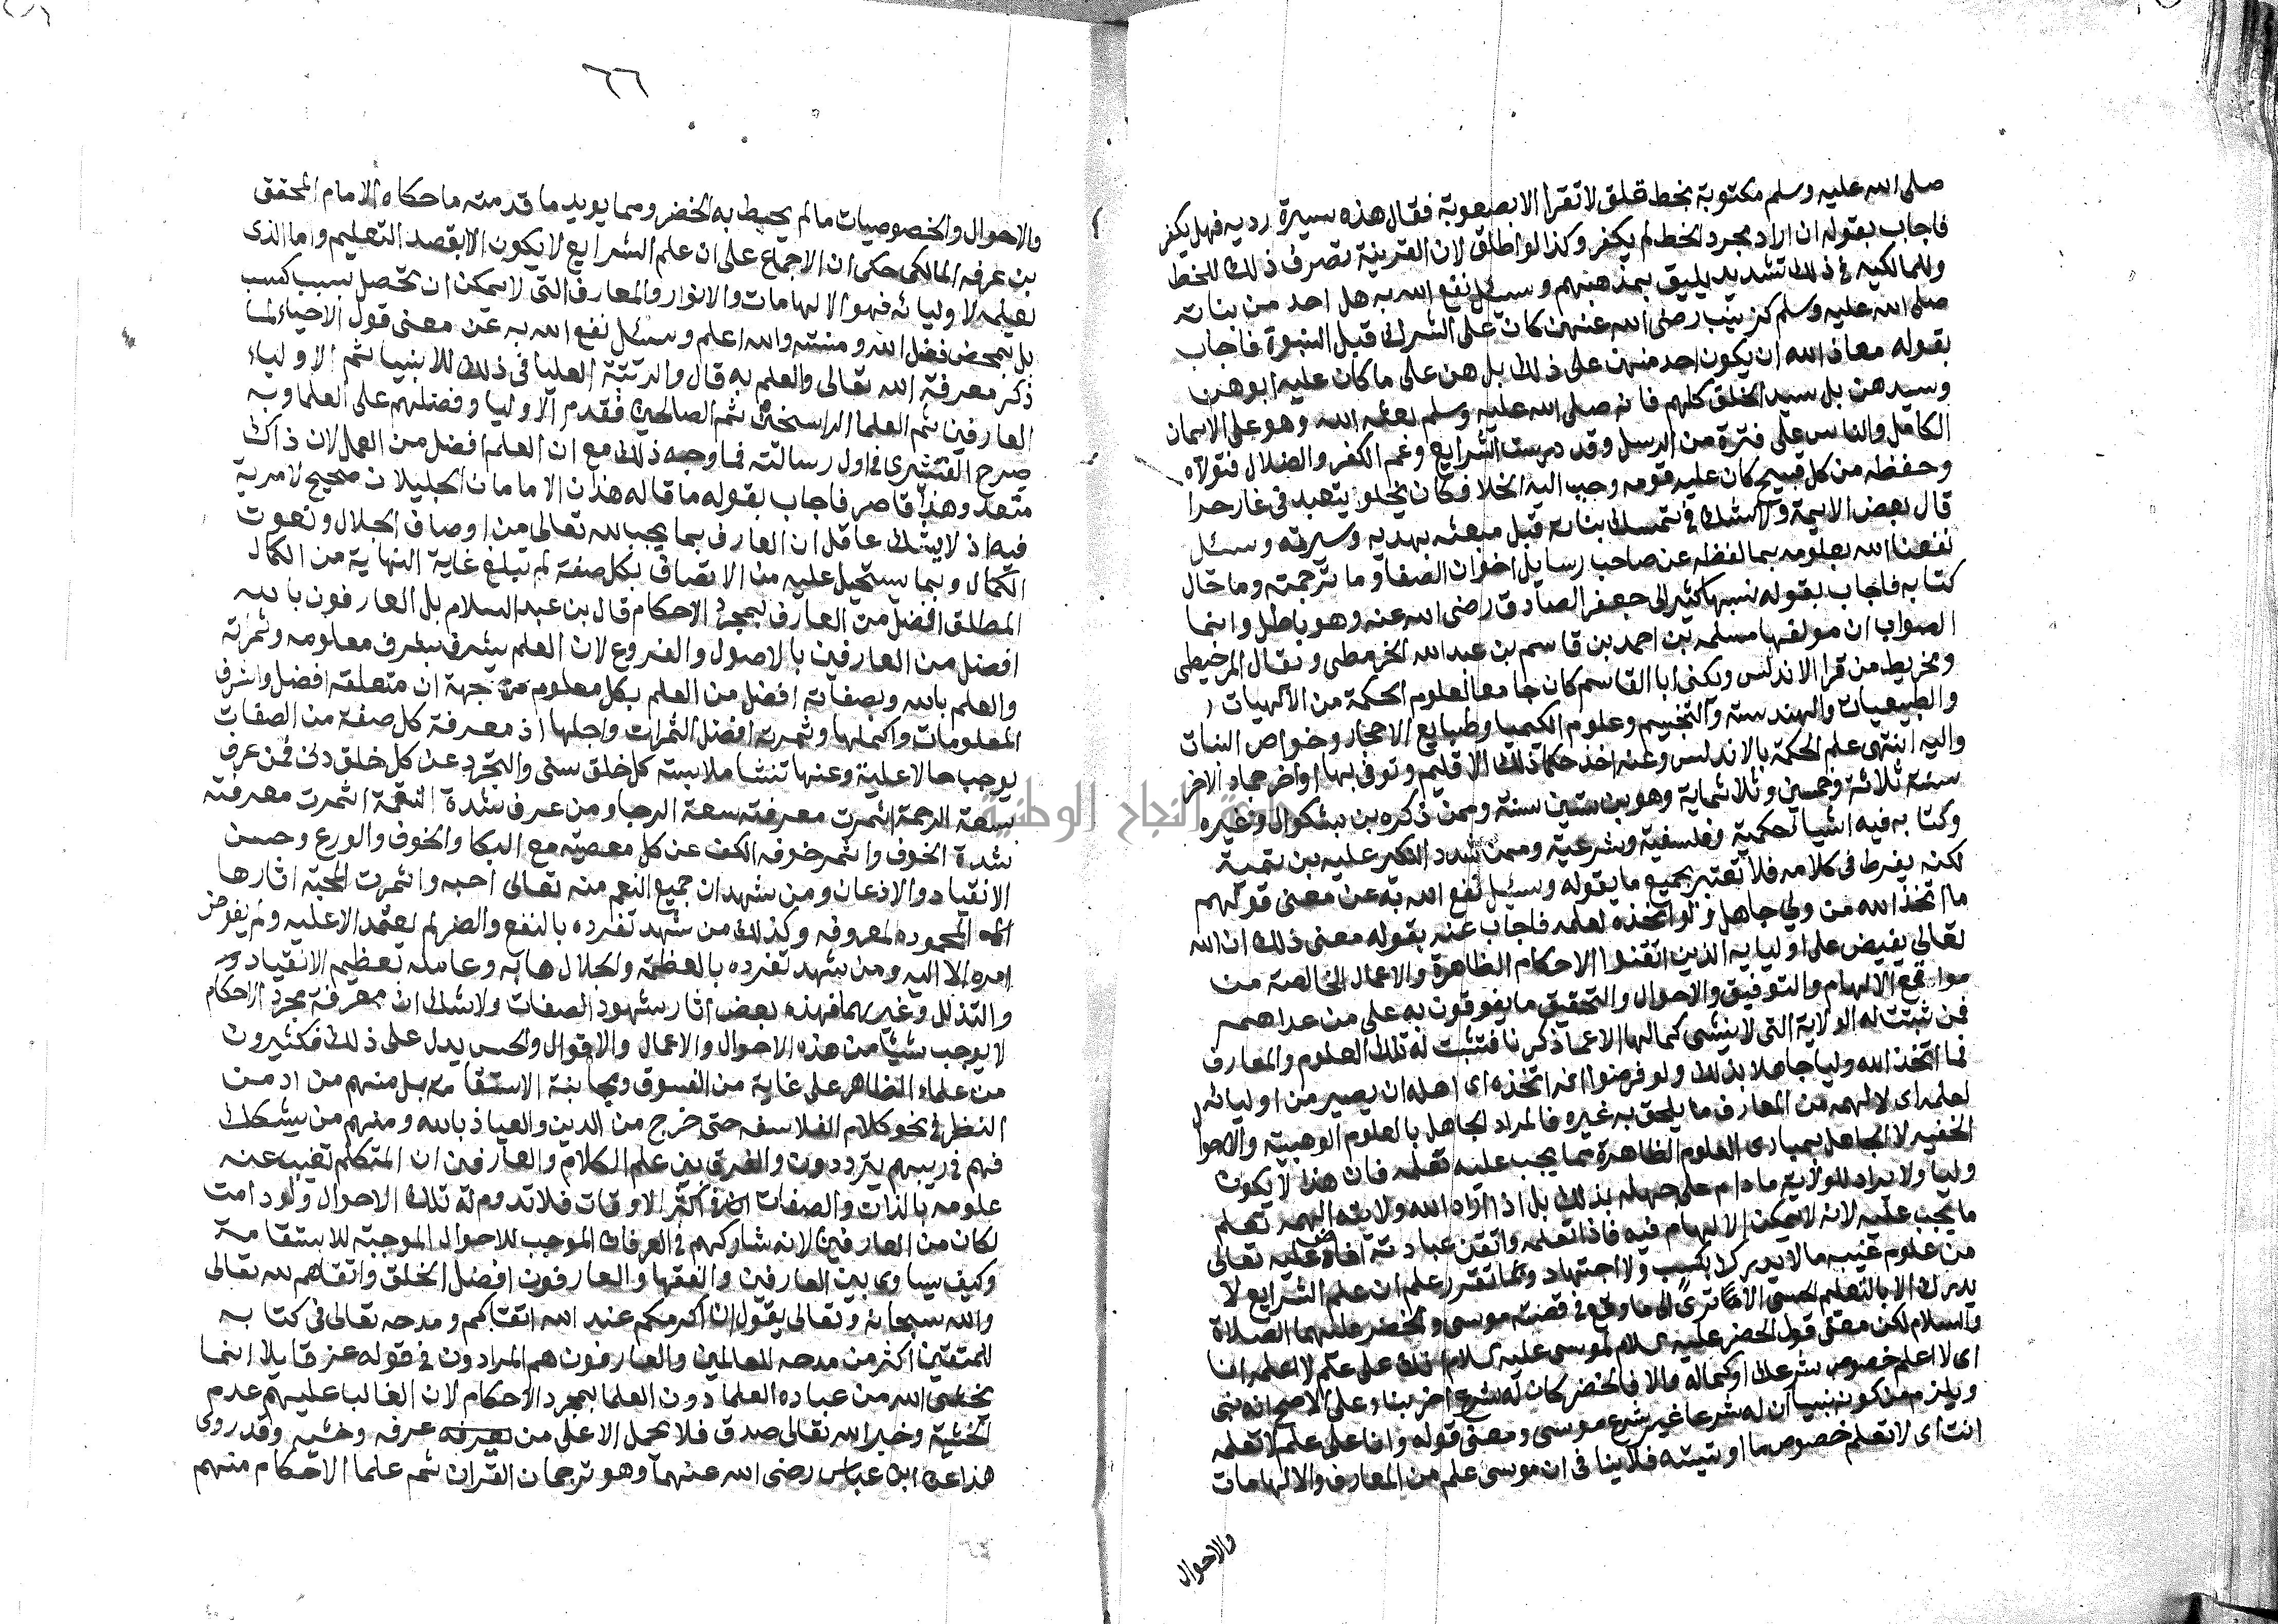 صلى الله عليه وسلم مكتوبة بخط قلق لا تقرا الا بصعوبة فقال هذه سيرة رديه فهل يكفر
فاجاب بقوله ان اراد مجرد الخط لم يكفر وكذا لو اطلق لان القرينة تصرف ذلك للخط
وللمالكيه في ذلك تشديد يليق بمذهبهم وسئل نفع الله به هل احد من بنات
صلى الله عليه وسلم كزينب رضى الله عنهن كان على الشرك قبل النبوة فاجاب
بقوله معاذ الله ان يكون احد منهن على ذلك بل هن على ما كان عليه ابوهن
وسيدهن بل سيد الخلق كلهم فانه صلى الله عليه وسلم بعثه الله وهو على الايمان
الكامل والناس على فترة من الرسل وقد درست الشرايع وعم الكفر والضلال فتولاه
وحفظه من كل قبيح كان عليه قومه وحبب اليه الخلا فكان يخلو يتعبد في غار حرا
قال بعض الايمة ولا شك في تمسك بناته قبل مبعثه بهديه وسيرته وسئل
نفعنا الله بعلومه بما لفظه عن صاحب رسايل اخوان الصفا وما ترجمته وما حال
كتابه فاجاب بقوله نسبها كثير الى جعفر الصادق رضى الله عنه وهو باطل وانما
الصواب ان مولفها مسلمه بن احمد بن قاسم بن عبد الله
من قرا الاندلس ويكنى ابا القاسم كان جامعا لعلوم الحكمة من الالهيات
والطبيعيات والهندسة والتنجيم وعلوم الكيميا وطبايع الاحجار وخواص النبات
واليه انتهى علم الحكمة بالاندلس وعنه اخذ حكما ذلك الاقليم وتوفى بها اواخر جماد الاخر
سنة ثلاثة وخمسين وثلاثماية وهو بن ستين سنة وممن ذكره بن بشكوال وغيره
وكتابه فيه اشيا حكمية وفلسفية وشرعية وممن شدد النكر عليه بن تيمية
لكنه يفرط في كلامه فلا تغتر بجميع ما يقوله وسئل نفع الله به عن معنى قولهم
ما اتخذ الله من ولي جاهل ولو اتخذه لعلمه فاجاب عنه بقوله معنى ذلك ان الله
تعالى يفيض على اوليايه الذين اتقنوا الاحكام الظاهرة والاعمال الخالصة من
مواقع الالهام والتوفيق والاحوال والتحقيق ما يفوقون به على من عداهم
فمن ثبتت له الولاية التي لا ينشى كمالها الا عما ذكرنا فتثبت له تلك العلوم والمعارف
فما اتخذ الله وليا جاهلا بذلك ولو فرضوا انه اتخذه اى اهله ان يصير من اوليائه
لعلمه اى لالهمه من المعارف ما يلحق به غيره فالمراد الجاهل بالعلوم الوهبية والاحوال
الخفيه لا الجاهل بمبادى العلوم الظاهرة مما يجب عليه تعلمه فان هذا لا يكون
وليا ولا يراد للولاية ما دام على جهله بذلك بل اذا اراد الله ولايته الهمه تعلم
ما يجب عليه لانه لا يمكن الالهام فيه فاذا تعلمه واتقن عبادته افاض عليه تعالى
من علوم غيبه ما لا يدرك بكسب ولا اجتهاد وبما تقرر علم ان علم الشرايع لا
يدرك الا بالتعلم الحسى الا ترى الى ما وقع في قصة موسى والخضر عليهما الصلاة
والسلام لكن معنى قول الخضر عليه السلام لموسى عليه السلام انك على علم لا اعلمه انا
اى لا اعلم خصوص شرعك او كماله والا فالخضر كان له شرع اخر بناء على الاصح انه نبى
ويلزم من كونه نبيا ان له شرعا غير شرع موسى ومعنى قوله وانا على علم لا تعلمه
انت اى لا تعلم خصوص ما اوتيته فلا ينافى ان موسى علم من المعارف والالهامات
والاحوال
٦٦
والاحوال والخصوصيات ما لم يحيط به الخضر ومما يويد ما قدمته ما حكاه الامام المحقق
بن عرفه المالكى حكى ان الاجماع على ان علم الشرايع لا يكون الا بقصد التعليم واما الذى
يعلمه لاوليائه فهو الالهامات والانوار والمعارف التى لا يمكن ان تحصل بسبب كسب
بل بمحض فضل الله ومنته والله اعلم وسئل نفع الله به عن معنى قول الاحياء لما
ذكر معرفة الله تعالى والعلم به قال والرتبة العليا في ذلك للانبيا ثم الاولياء
العارفين ثم العلما الراسخين ثم الصالحين فقدم الاوليا وفضلهم على العلما وبه
صرح القشيرى في اول رسالته فما وجه ذلك مع ان العلم افضل من العمل لان ذاك
متعد وهذا قاصر فاجاب بقوله ما قاله هذان الامامان الجليلان صحيح لا مرية
فيه اذ لا يشك عاقل ان العارف بما يجب لله تعالى من اوصاف الجلال ونعوت
الكمال وبما يستحيل عليه من الاتصاف بكل صفة لم تبلغ غاية النهاية من الكمال
المطلق افضل من العارف بمجرد الاحكام قال بن عبد السلام بل العارفون بالله
افضل من العارفين بالاصول والفروع لان العلم يشرف بشرف معلومه وثمراته
والعلم بالله وبصفاته افضل من العلم بكل معلوم من جهة ان متعلقه افضل واشرف
المعلومات واكملها وثمرته افضل الثمرات واجلها اذ معرفة كل صفة من الصفات
يوجب حالا علية وعنها تنشا ملابسة كل خلق سنى والتجرد عن كل خلق دنى فمن عرف
سعة الرحمة اثمرت معرفته سعة الرجا ومن عرف شدة النقمة اثمرت معرفته
شدة الخوف واثمر خوفه الكف عن كل معصية مع البكا والخوف والورع وحسن
الانقياد والاذعان ومن شهد ان جميع النعم منه تعالى احبه واثمرت المحبة اثارها
المحموده المعروفه وكذلك من شهد تفرده بالنفع والضر لم يعتمد الا عليه ولم يفوض
امره الا اليه ومن شهد تفرده بالعظمة والجلال هابه وعامله تعظيم الانقياد
والتذلل وغيرهما فهذه بعض اثار شهود الصفات ولا شك ان معرفة مجرد الاحكام
لا يوجب شيئا من هذه الاحوال والاعمال والاقوال والحس يدل على ذلك فكثيرون
من علماء الظاهر على غاية من الفسوق ومجانبة الاستقامة بل منهم من ادمن
النظر في نحو كلام الفلاسفه حتى خرج من الدين والعياذ بالله ومنهم من يشكك
فهم في ريبهم يترددون والفرق بين علم الكلام والعارفين ان المتكلم تغيب عنه
علومه بالذات والصفات في اكثر الاوقات فلا تدوم له تلك الاحوال ولو دامت
لكان من العارفين لانه شاركهم في العرفان الموجب للاحوال الموجبة للاستقامة
وكيف يساوى بين العارفين والفقها والعارفون افضل الخلق واتقاهم لله تعالى
والله سبحانه وتعالى يقول ان اكرمكم عند الله اتقاكم ومدحه تعالى في كتابه
للمتقين اكثر من مدحه للعالمين والعارفون هم المرادون في قوله عز قايلا انما
يخشى الله من عباده العلما دون العلما بمجرد الاحكام لان الغالب عليهم عدم
الخشية وخبر الله تعالى صدق فلا يحمل الا على من عرفه وخشيه وقد روى
هذا عن ابن عباس رضى الله عنهما وهو ترجمان القران ثم علما الاحكام منهم
جامعة النجاح الوطنية